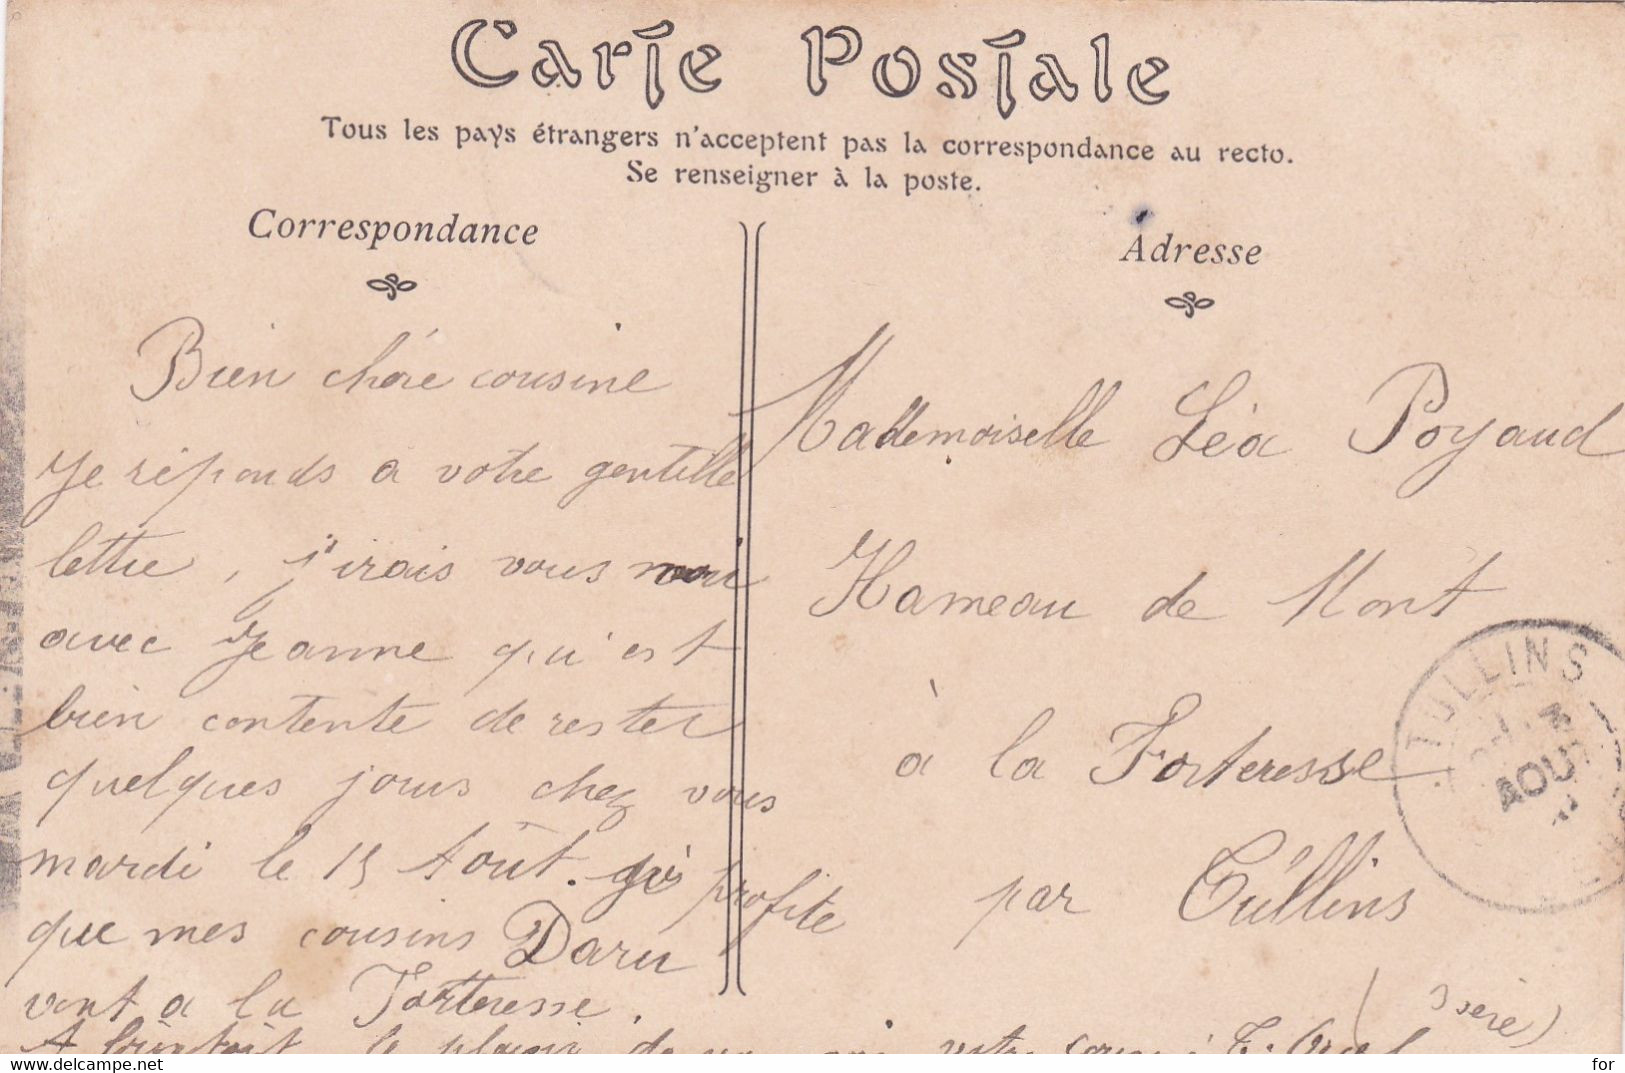 Carte Postale
Tous les pays étrangers n'acceptent pas la correspondance au recto.
Se renseigner à la poste.
Correspondance
Bien chére cousine
Je réponds a votre gentille
lettre, j'irais vous
avec Jeanne qui est
bien contente de rester
quelques jours chez vous
mardi le 15 Août. profite
que mes cousins Daru
vont a la Forteresse.
A bientôt le plaisir de
Adresse
Mademoiselle Léa Poyaud
Hameau de Mont
à la Forteresse
par Tullins
(Isère)
TULLINS
AOUT
www.delcampe.net
for